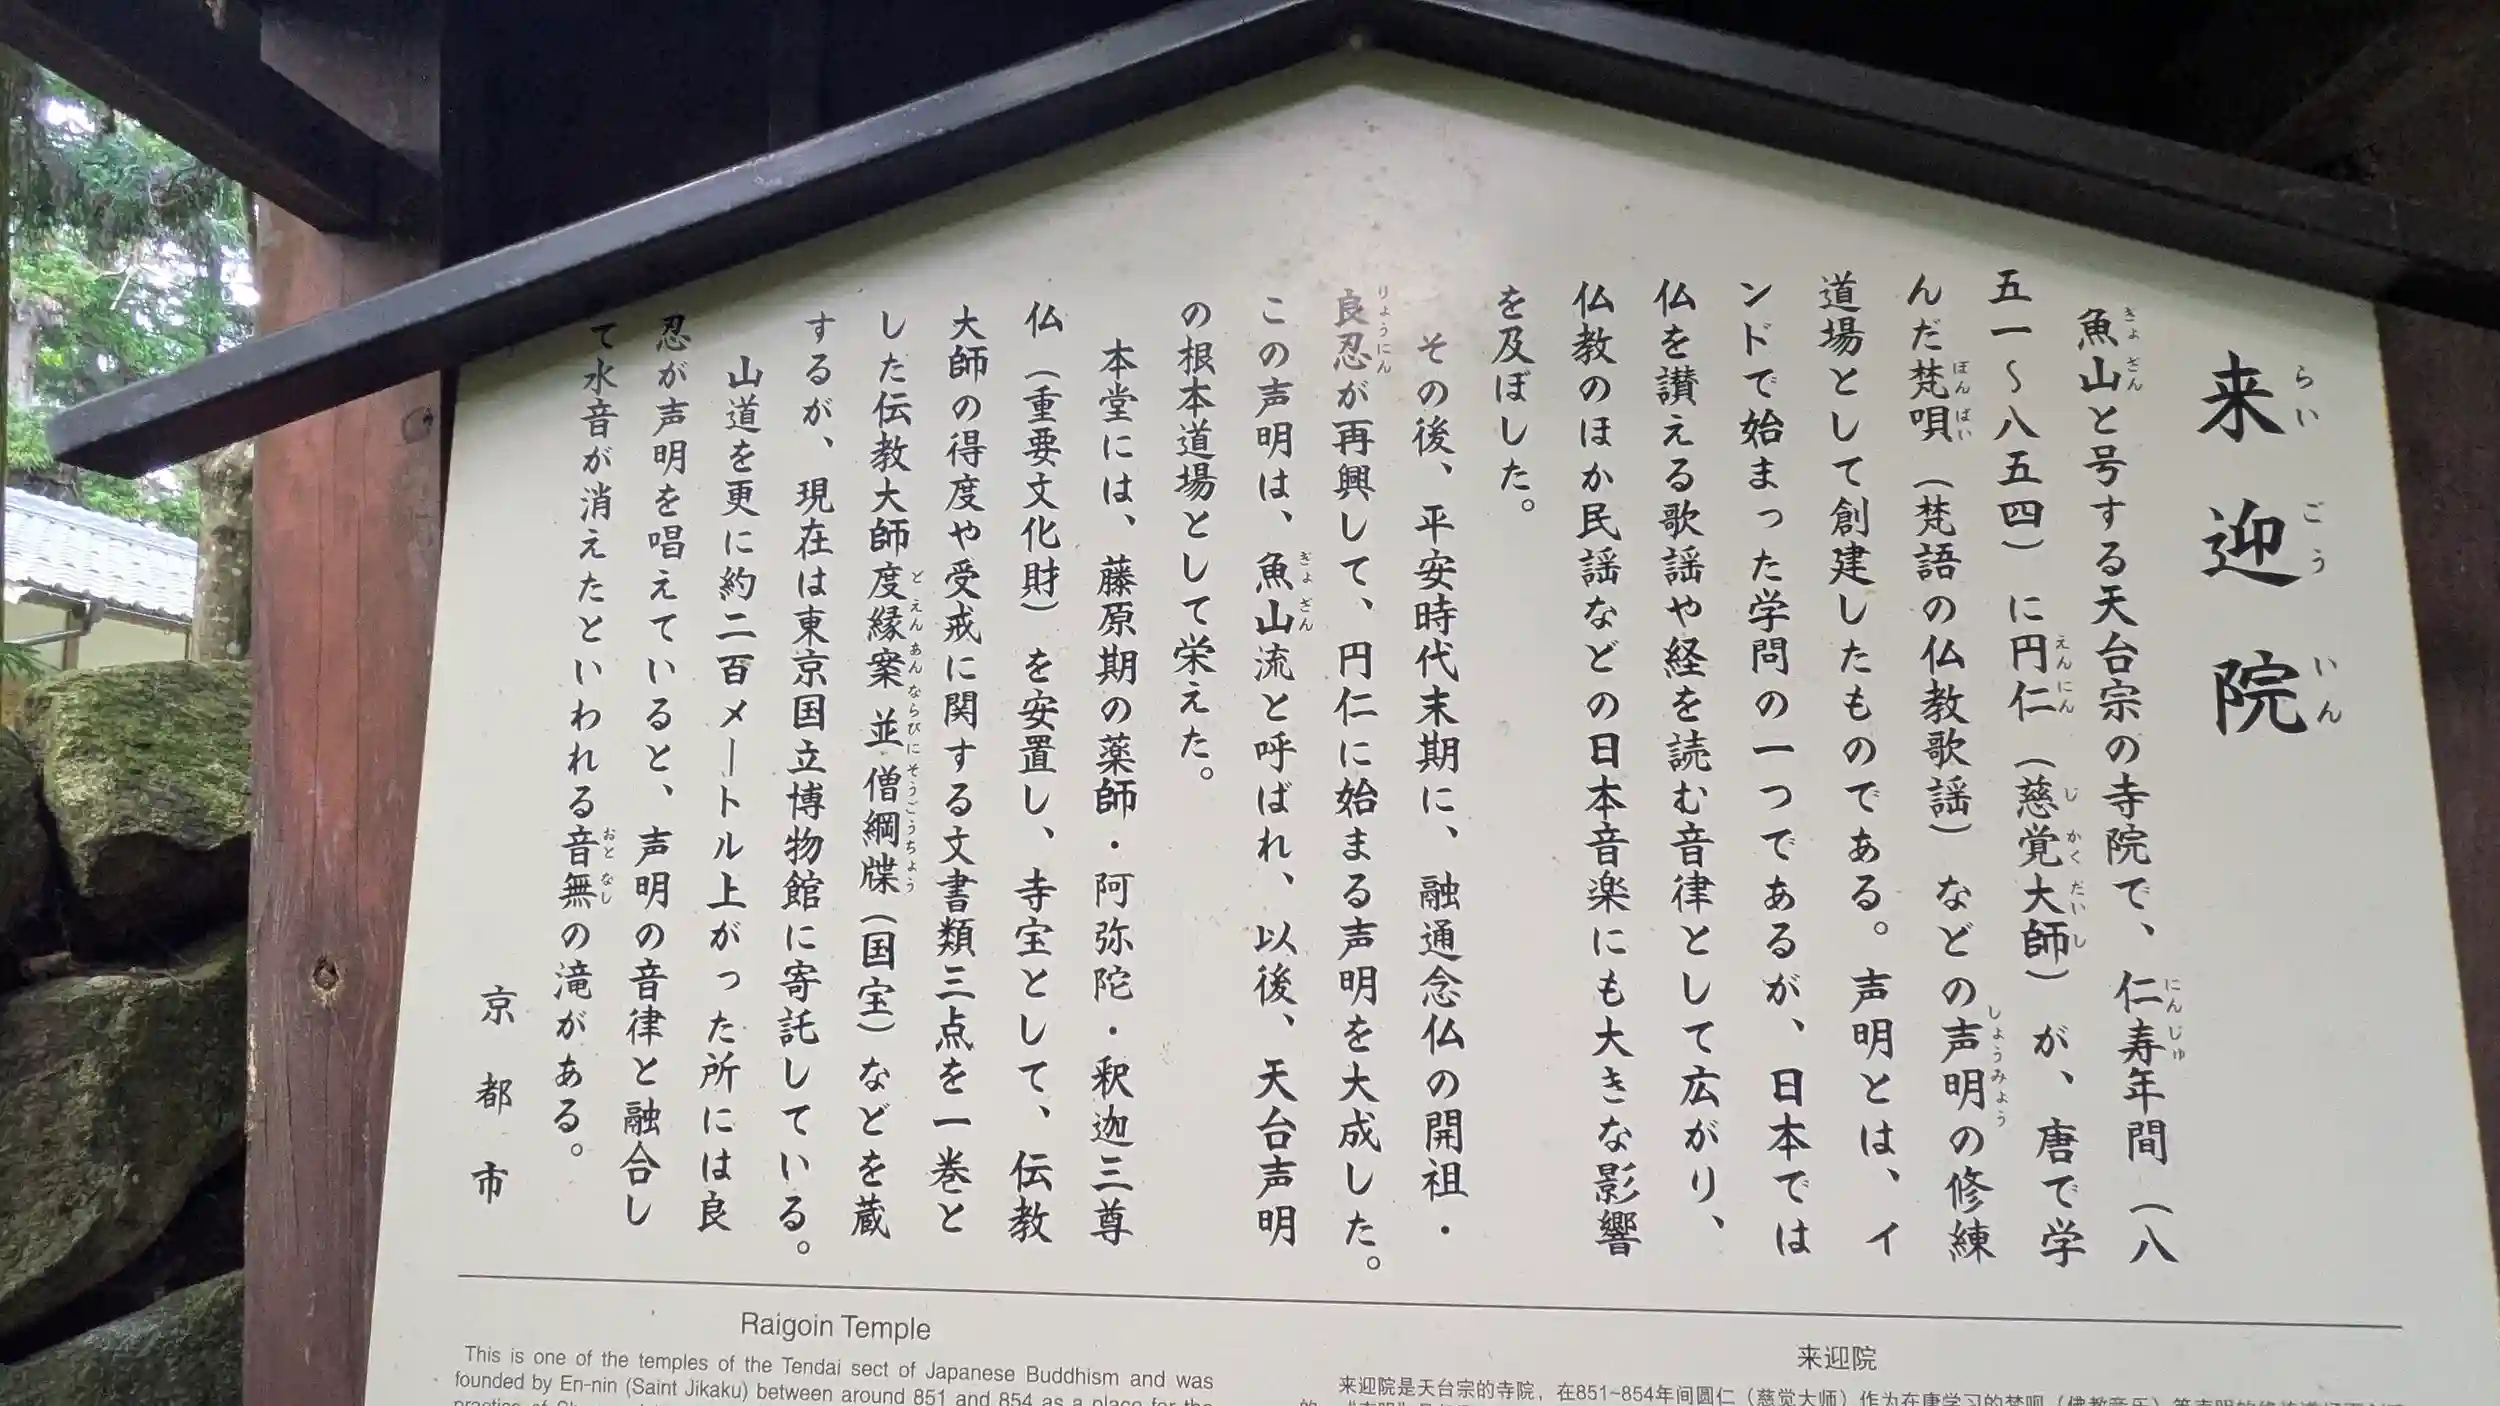 来迎院
らいごういん
魚山と号する天台宗の寺院で、仁寿年間（八
ぎょざん
にんじゅ
五一～八五四）に円仁（慈覚大師）が、唐で学
えんにん
じかくだいし
んだ梵唄（梵語の仏教歌謡）などの声明の修練
ぼんばい
しょうみょう
道場として創建したものである。声明とは、イ
ンドで始まった学問の一つであるが、日本では
仏を讃える歌謡や経を読む音律として広がり、
仏教のほか民謡などの日本音楽にも大きな影響
を及ぼした。
その後、平安時代末期に、融通念仏の開祖・
良忍が再興して、円仁に始まる声明を大成した。
りょうにん
この声明は、魚山流と呼ばれ、以後、天台声明
ぎょざん
の根本道場として栄えた。
本堂には、藤原期の薬師・阿弥陀・釈迦三尊
仏（重要文化財）を安置し、寺宝として、伝教
大師の得度や受戒に関する文書類三点を一巻と
した伝教大師度縁案並僧綱牒（国宝）などを蔵
どえんあんならびにそうごうちょう
するが、現在は東京国立博物館に寄託している。
山道を更に約二百メートル上がった所には良
忍が声明を唱えていると、声明の音律と融合し
て水音が消えたといわれる音無の滝がある。
おとなし
京都市
Raigoin Temple
This is one of the temples of the Tendai sect of Japanese Buddhism and was
founded by En-nin (Saint Jikaku) between around 851 and 854 as a place for the
来迎院
来迎院是天台宗的寺院，在851~854年间圆仁（慈觉大师）作为在唐学习的梵呗（佛教音乐）等声明的修炼道场